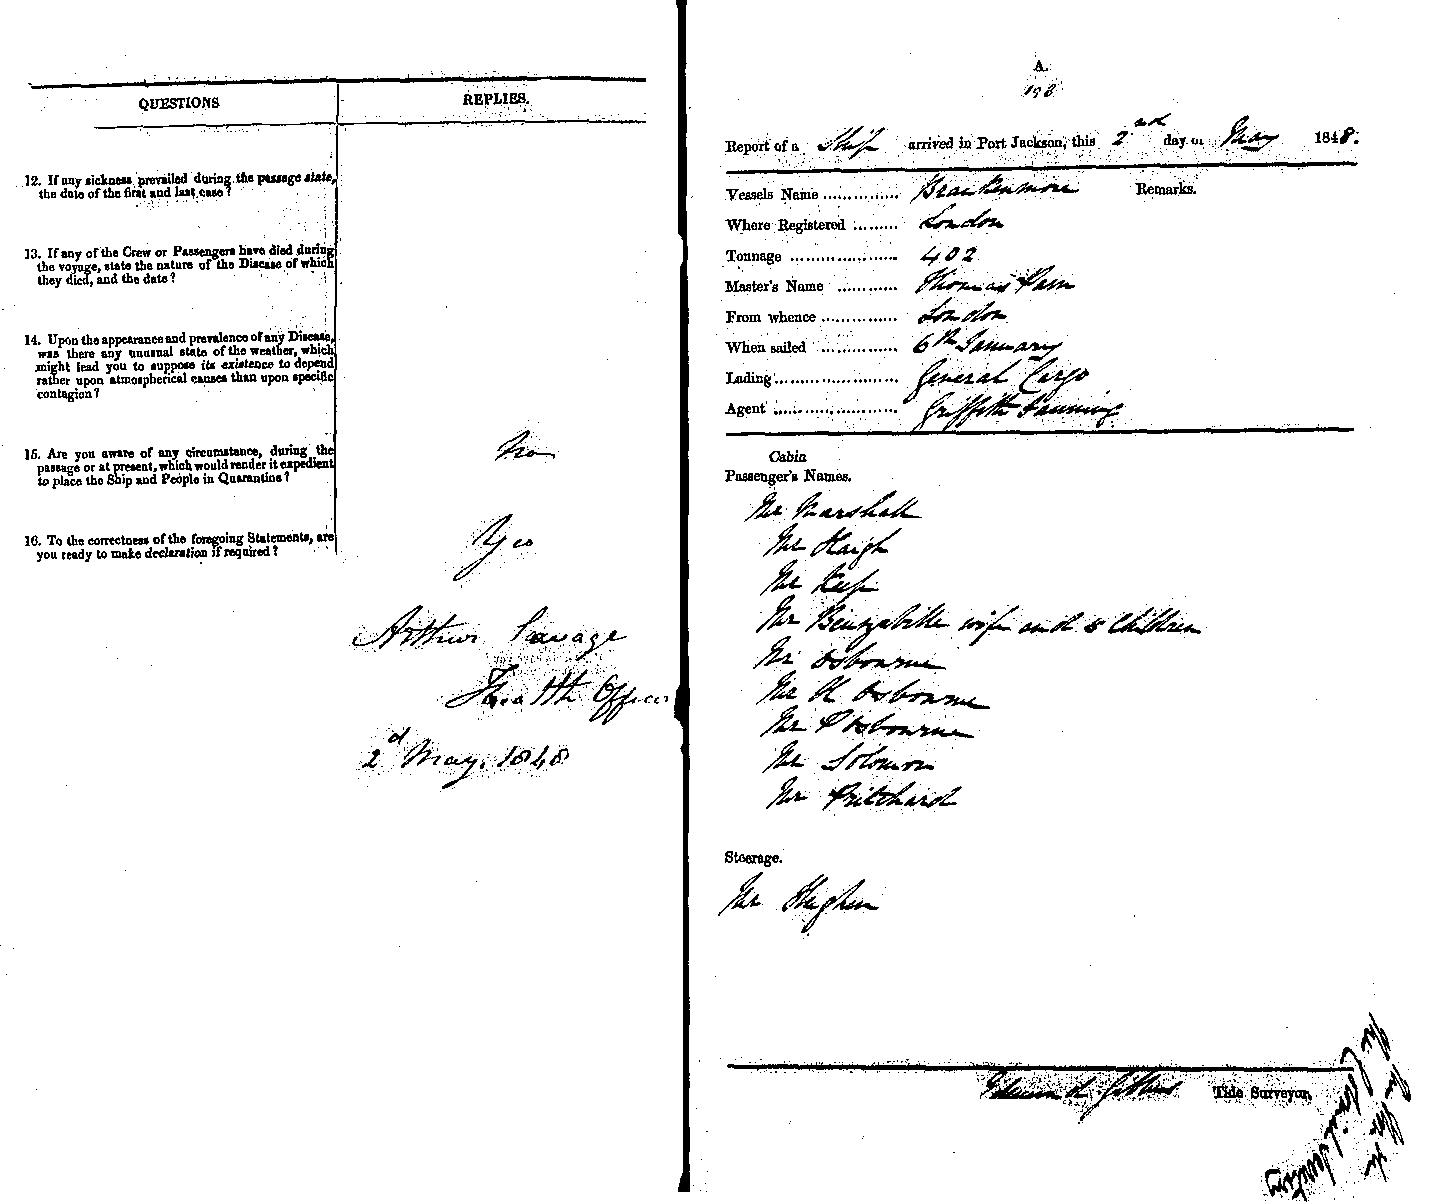 QUESTIONS
REPLIES.
12. If any sickness prevailed during the passage state,
the date of the first and last case?
13. If any of the Crew or Passengers have died during
the voyage, state the nature of the Disease of which
they died, and the date?
14. Upon the appearance and prevalence of any Disease,
was there any unusual state of the weather, which
might lead you to suppose its existence to depend
rather upon atmospherical causes than upon specific
contagion?
15. Are you aware of any circumstance, during the
passage or at present, which would render it expedient
to place the Ship and People in Quarantine?
No
16. To the correctness of the foregoing Statements, are
you ready to make declaration if required?
Yes
Arthur Savage
Health Officer
2d May, 1848
A.
198
Report of a Ship arrived in Port Jackson, this 2nd day of May 1848.
Vessels Name .............. Brankenmore
Remarks.
Where Registered ......... London
Tonnage .................... 402
Master's Name ............ Thomas Parn
From whence .............. London
When sailed .............. 6th January
Lading....................... General Cargo
Agent ....................... Griffith Fanning
Cabin
Passenger's Names.
Mr Marshall
Mr Haigh
Mr Keep
Mr wife and Children
Mr Osbourne
Mr H Osbourne
Mr P Osbourne
Mr Solomon
Mr Pritchard
Steerage.
Mr Hughes
Tide Surveyor.